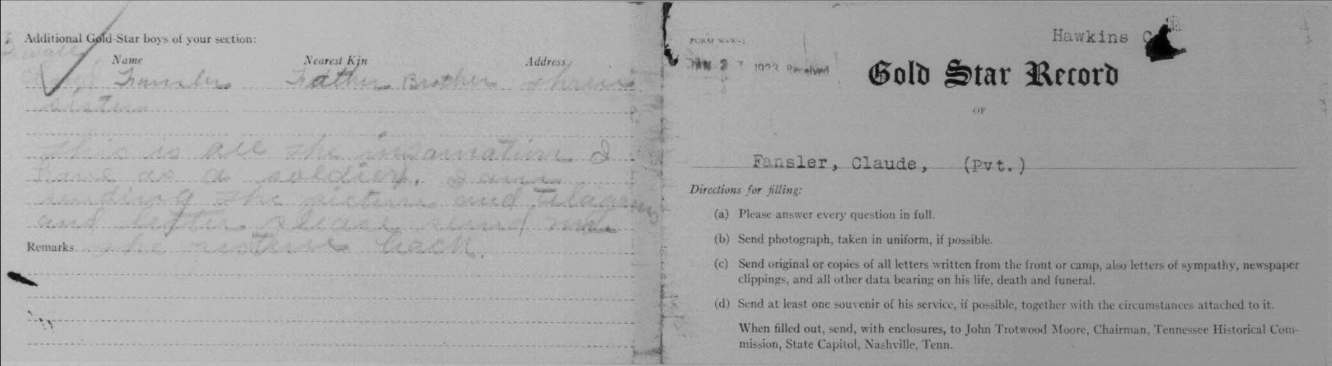 Additional Gold Star boys of your section:
Name Nearest Kin Address
Fansler Father Brother three
sister
This is all the infarmation I
have as a soldier. I am
sending the picture and
and letter please send me
Remarks the picture back.
Hawkins
JAN 2 1923 Received
Gold Star Record
OF
Fansler, Claude, (Pvt.)
Directions for filling:
(a) Please answer every question in full.
(b) Send photograph, taken in uniform, if possible.
(c) Send original or copies of all letters written from the front or camp, also letters of sympathy, newspaper
clippings, and all other data bearing on his life, death and funeral.
(d) Send at least one souvenir of his service, if possible, together with the circumstances attached to it.
When filled out, send, with enclosures, to John Trotwood Moore, Chairman, Tennessee Historical Com-
mission, State Capitol, Nashville, Tenn.